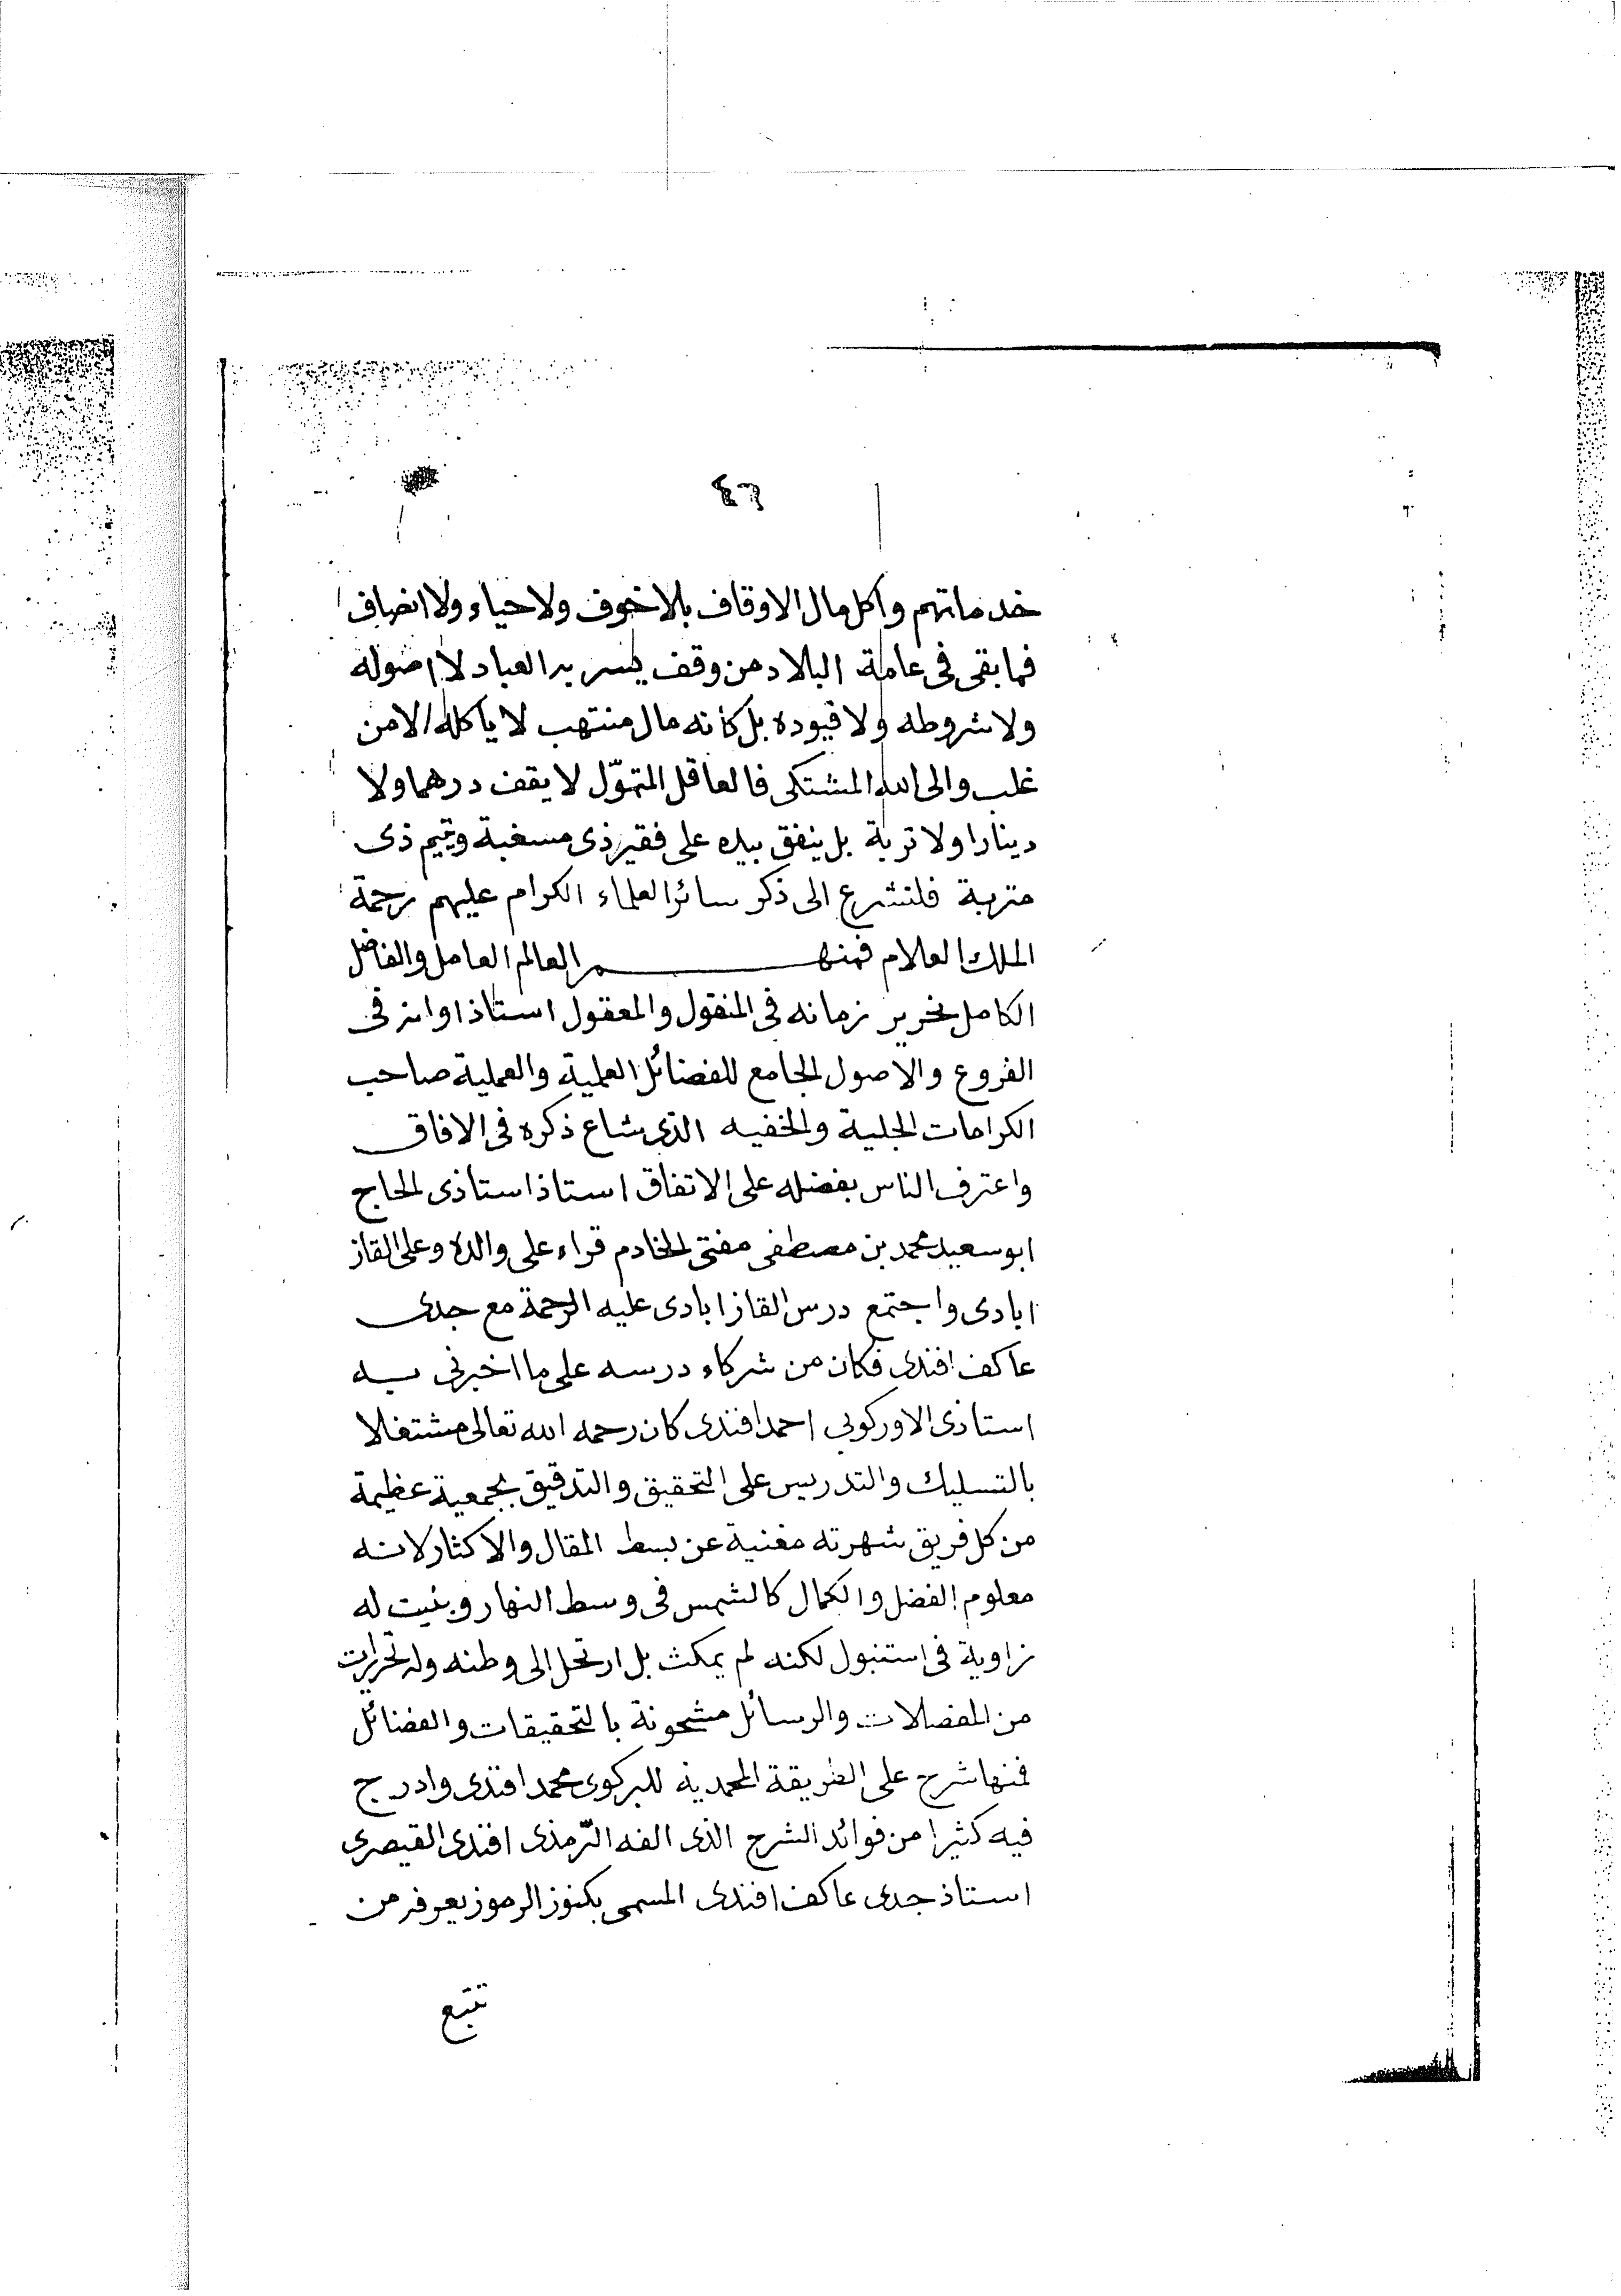 ٤٦
خدماتهم واكل مال الاوقاف بلا خوف ولا حياء ولا انصاف
فما بقى فى عامة البلاد من وقف يسر به العباد لا اصوله
ولا شروطه ولا قيوده بل كانه مال منتهب لا يأكله الا من
غلب والى الله المشتكى فالعاقل المتموّل لا يقف درهما ولا
دينارا ولا تربة بل ينفق بيده على فقير ذى مسغبة ويتيم ذى
متربة فلنشرع الى ذكر سائر العلماء الكرام عليهم رحمة
الملك العلام فمنهم العالم العامل والفاضل
الكامل نحرير زمانه فى المنقول والمعقول استاذ اوانه فى
الفروع والاصول الجامع للفضائل العلمية والعملية صاحب
الكرامات الجلية والخفيه الذى شاع ذكره فى الافاق
واعترف الناس بفضله على الاتفاق استاذ استاذى الحاج
ابو سعيد محمد بن مصطفى مفتى الخادم قراء على والده وعلى القاز
ابادى واجتمع درس القازابادى عليه الرحمة مع جدى
عاكف افندى فكان من شركاء درسه على ما اخبرنى به
استاذى الاوركوبى احمد افندى كان رحمه الله تعالى مشتغلا
بالتسليك والتدريس على التحقيق والتدقيق بجمعية عظيمة
من كل فريق شهرته مغنية عن بسط المقال والاكثار لانه
معلوم الفضل والكمال كالشمس فى وسط النهار وبنيت له
زاوية فى استنبول لكنه لم يمكث بل ارتحل الى وطنه وله تحريرات
من المفصلات والرسائل مشحونة بالتحقيقات والفضائل
فمنها شرح على الطريقة المحمدية للبركوى محمد افندى وادرج
فيه كثيرا من فوائد الشرح الذى الفه الترمذى افندى القيصرى
استاذ جدى عاكف افندى المسمى بكنوز الرموز يعرفه من
تتبع